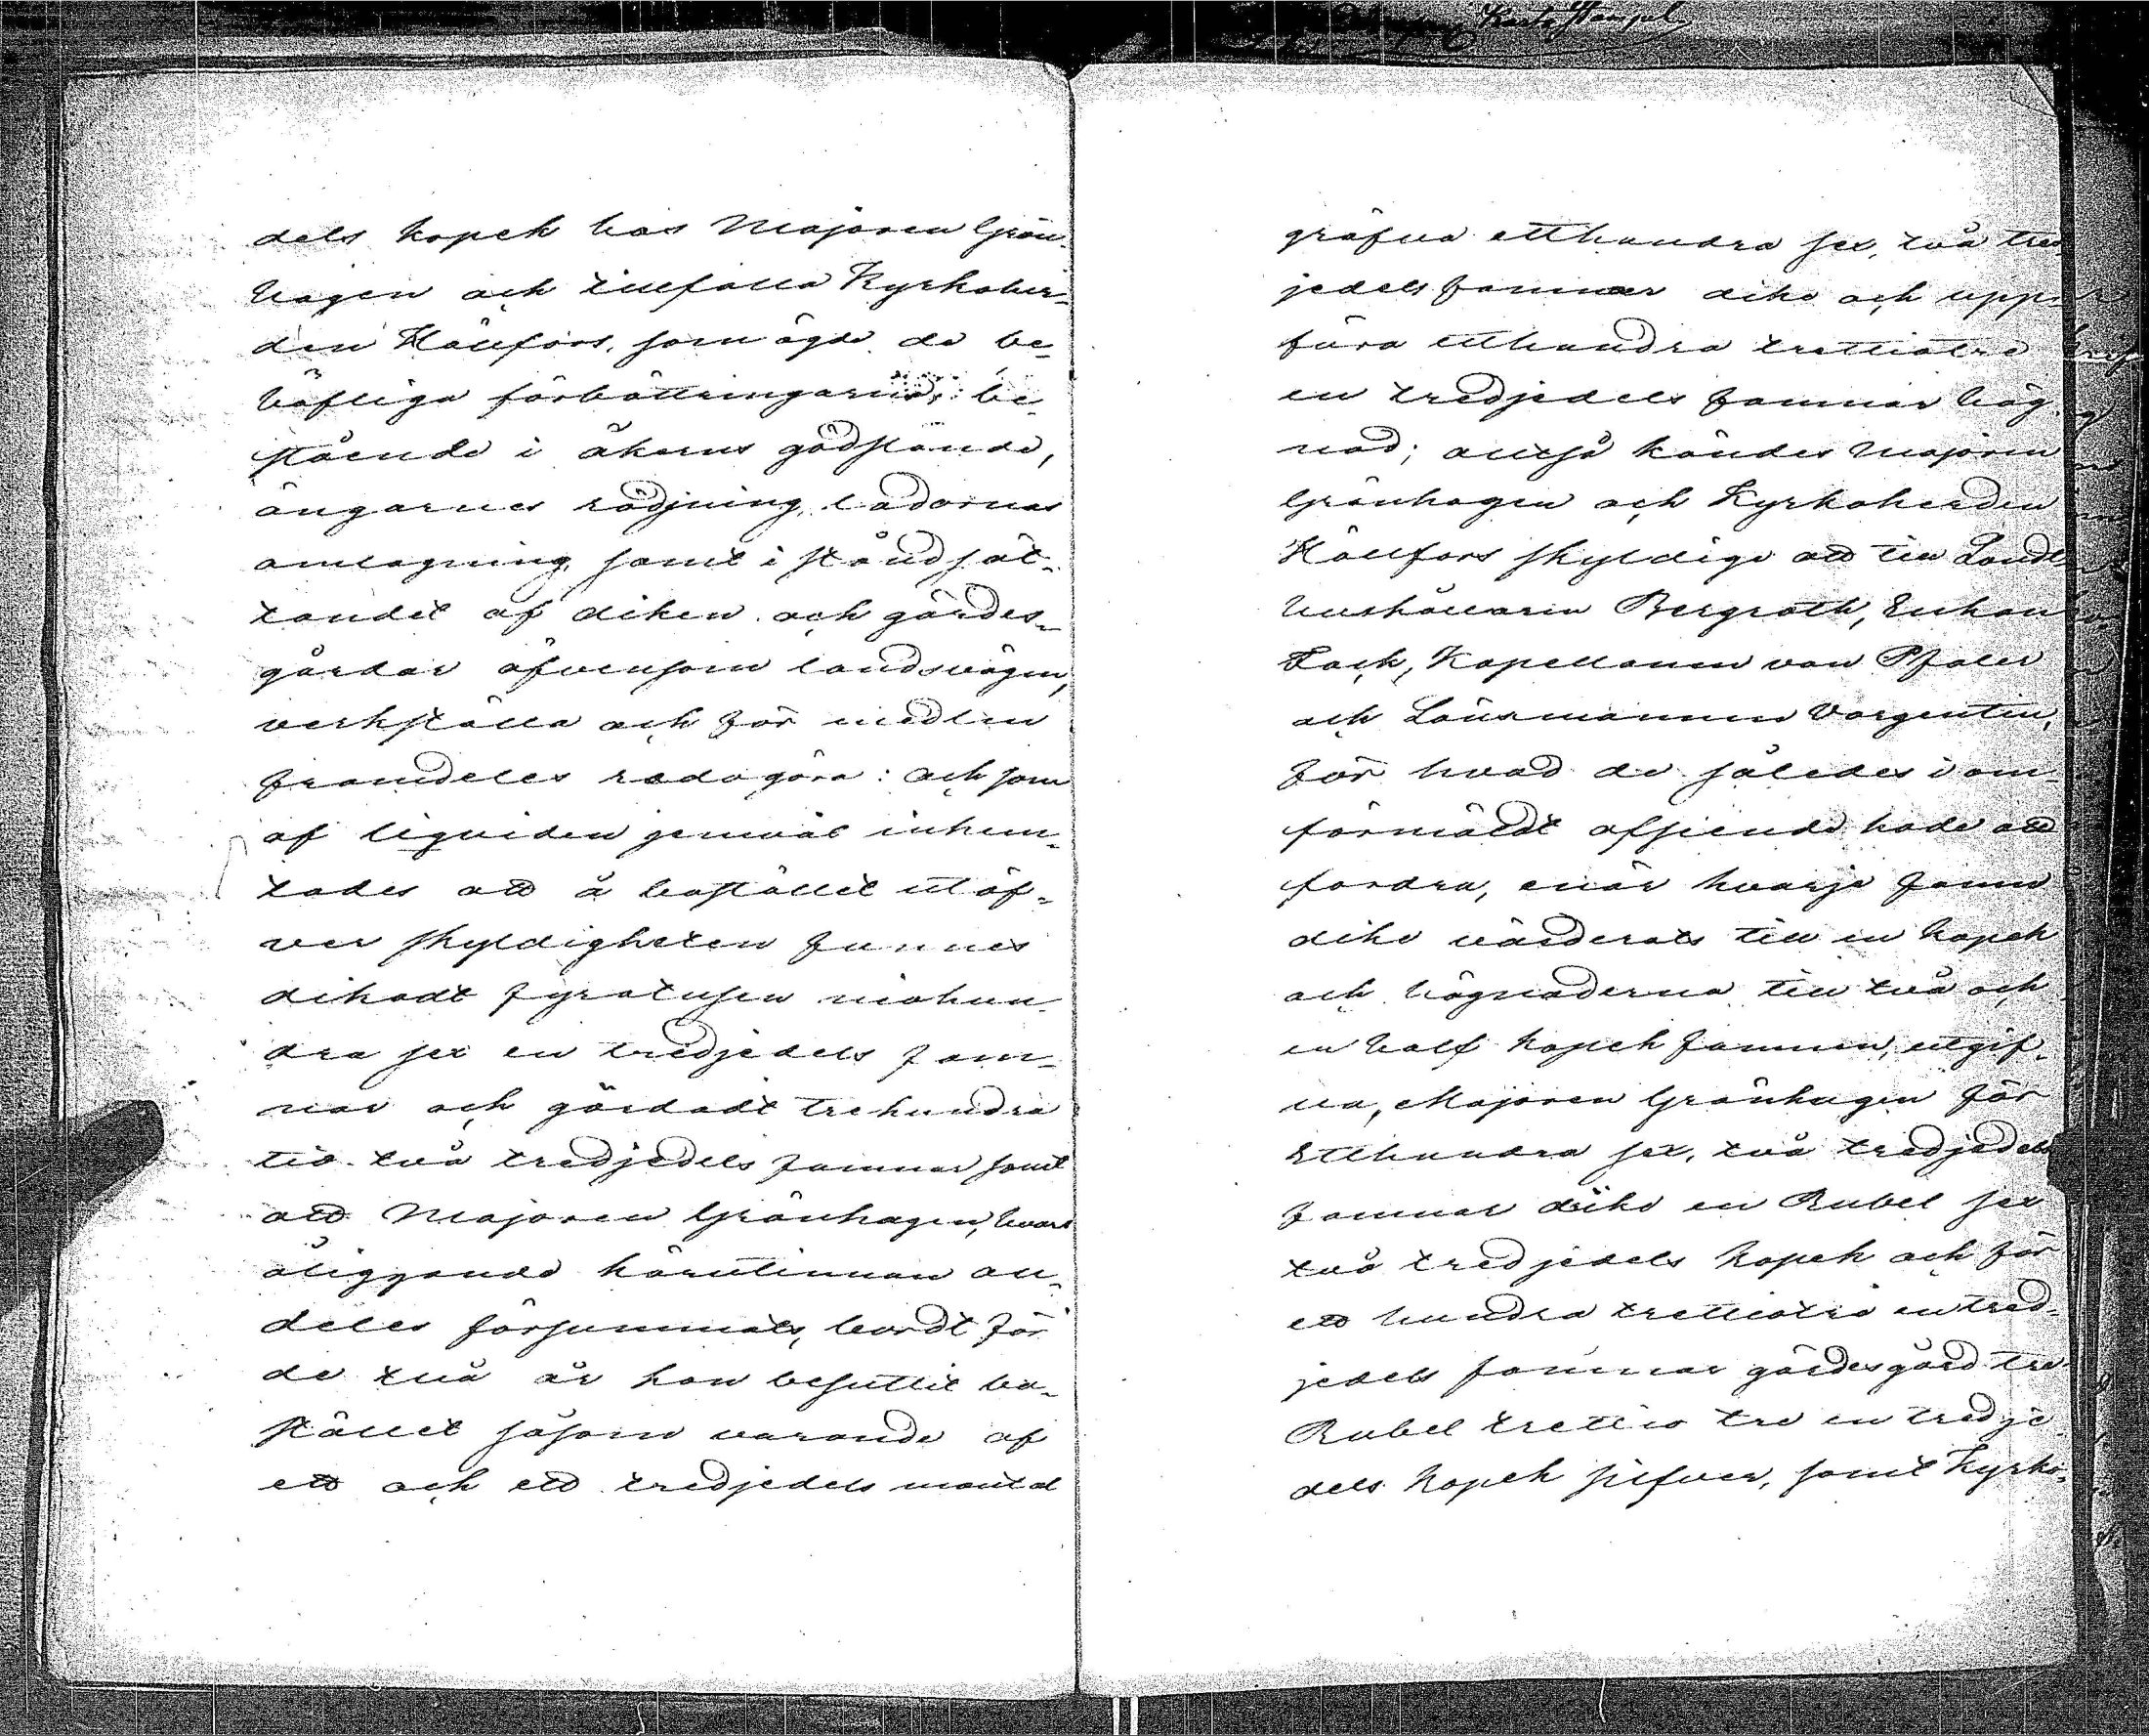 Karta Stempel
dels kopek hos Majoren Grön-
hagen och tillfalla Kyrkoher-
den Hällfors, som ägde de be-
höfliga förbättringarna, be-
stående i åkerns gödslande,
ängarnes rödjning, ladornas
omlagning samt i ståndsät-
tandet af diken och gärdes-
gårdar äfvensom landsvägen,
verkställa och för medlen
framdeles redogöra: och som
af liqviden jemväl inhem-
tades att å bostället utöf-
ver skyldigheten funnes
dikadt fyratusen niohun-
dra sex en tredjedels fam-
nar och gärdadt trehundra
tio två tredjedels famnar samt
att Majoren Grönhagen, hvars
åliggande härutinnan an-
deles försummats, bordt för
de två år han besuttit bo-
stället såsom varande af
ett och ett tredjedels mantal
gräfva etthundra sex, två tred-
jedels famnar dike och upp-
föra etthundra trettiotre
en tredjedels famnar häg-
nad; alltså kändes Majoren
Grönhagen och Kyrkoherden
Hällfors skyldige att till Landt-
hushållaren Bergroth, Enkan
Fack, Kapellanen von Pfaler
och Länsmannen Vargentin,
för hvad de således i om-
förmäldt afseende hade att
fordra, enär hvarje famn
dike värderats till en kopek
och hägnaderna till två och
en half kopek famnen, utgif-
va, Majoren Grönhagen för
Etthundra sex, två tredjedels
famnar dike en Rubel sex
två tredjedels kopek och för
ett hundra trettiotre en tred-
jedels famnar gärdesgård tre
Rubel trettio tre en tredje-
dels kopek silfver, samt Kyrko-